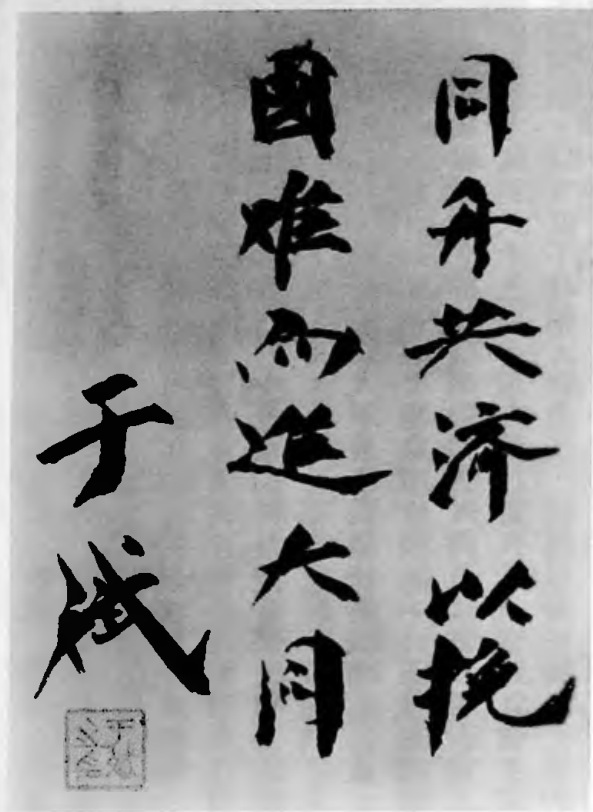 同舟共濟以挽
國难而進大同
于斌